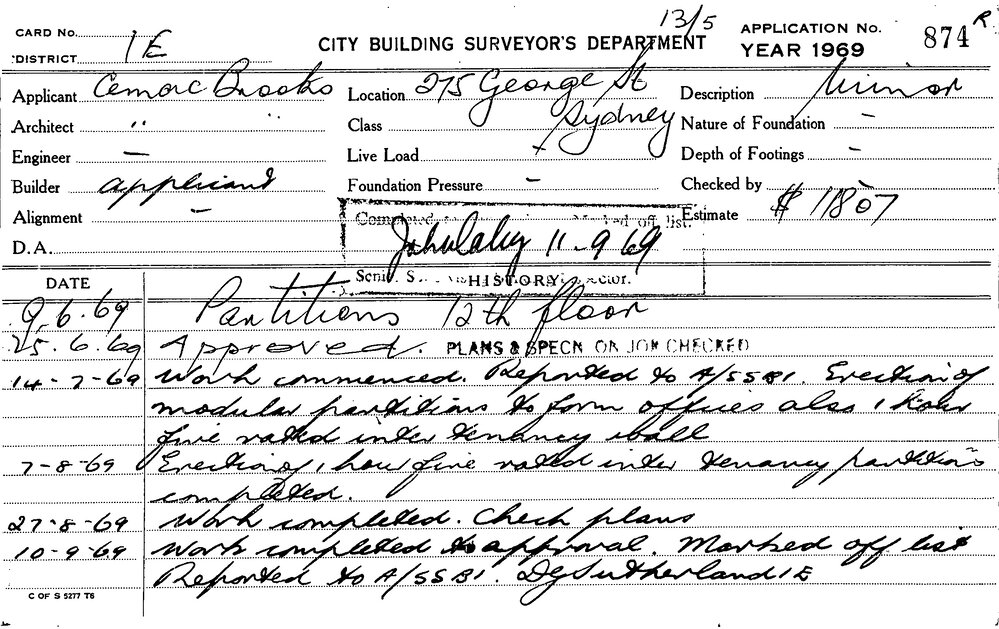 13/5
CARD No.
DISTRICT 1E
CITY BUILDING SURVEYOR'S DEPARTMENT
APPLICATION No. 874 R
YEAR 1969
Applicant Cemac Brooks
Location 275 George St Sydney
Description Minor
Architect " "
Class
Nature of Foundation –
Engineer –
Live Load
Depth of Footings –
Builder applicant
Foundation Pressure –
Checked by –
Alignment –
Completed Marked off list.
Estimate $11807
D.A.
11-9 69
DATE
HISTORY
9.6.69 Partitions 12th floor
25.6.69 Approved. PLANS & SPECN ON JOB CHECKED
14-7-69 Work commenced. Reported to A/SSBI. Erection of
modular partitions to form offices also 1 hour
fire rated inter tenancy wall
7-8-69 Erection of 1 hour fire rated inter tenancy partitions
completed.
27-8-69 Work completed. Check plans
10-9-69 Work completed to approval. Marked off list
Reported to A/SSBI. DG Sutherland 1E
C OF S 5277 T6